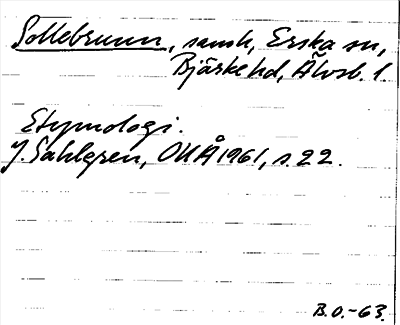 Sollebrunn, samh, Erska sn,
Bjärke hd, Älvsb. l.
Etymologi.
J. Sahlgren, OUÅ 1961, s. 22.
B.O.-63.